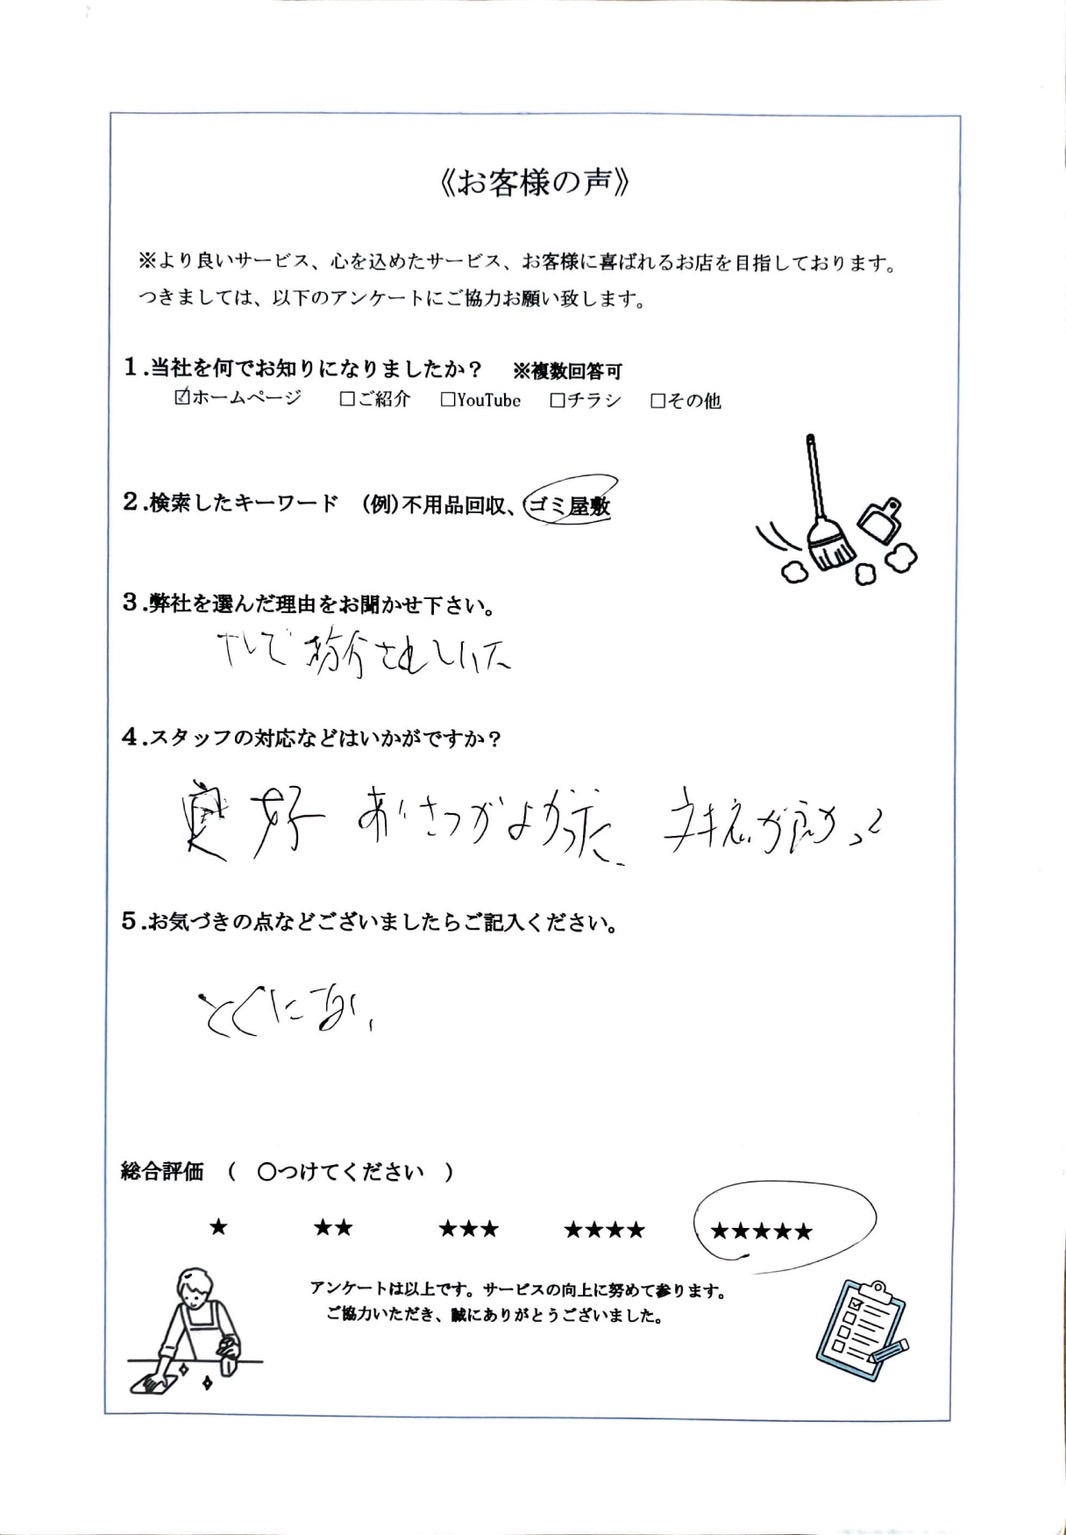 《お客様の声》
※より良いサービス、心を込めたサービス、お客様に喜ばれるお店を目指しております。
つきましては、以下のアンケートにご協力お願い致します。
1.当社を何でお知りになりましたか？　※複数回答可
☑ホームページ　□ご紹介　□YouTube　□チラシ　□その他
2.検索したキーワード　(例)不用品回収、ゴミ屋敷
3.弊社を選んだ理由をお聞かせ下さい。
紹介されていた
4.スタッフの対応などはいかがですか？
良好　あいさつがよかった　が良かっ
5.お気づきの点などございましたらご記入ください。
とくにない
総合評価　(　○つけてください　)
★　★★　★★★　★★★★　★★★★★
アンケートは以上です。サービスの向上に努めて参ります。
ご協力いただき、誠にありがとうございました。